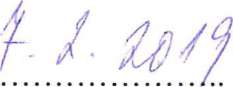 7. 2. 2019